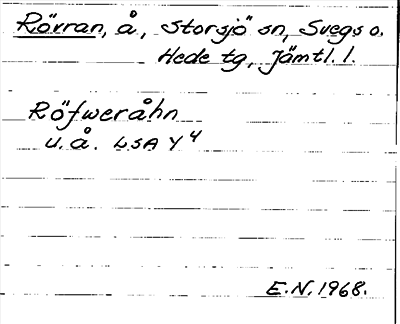 Rövran, å, Storsjö sn, Svegs o.
Hede tg, Jämtl. l.
Röfweråhn
u. å. LSA Y 4
E.N. 1968.